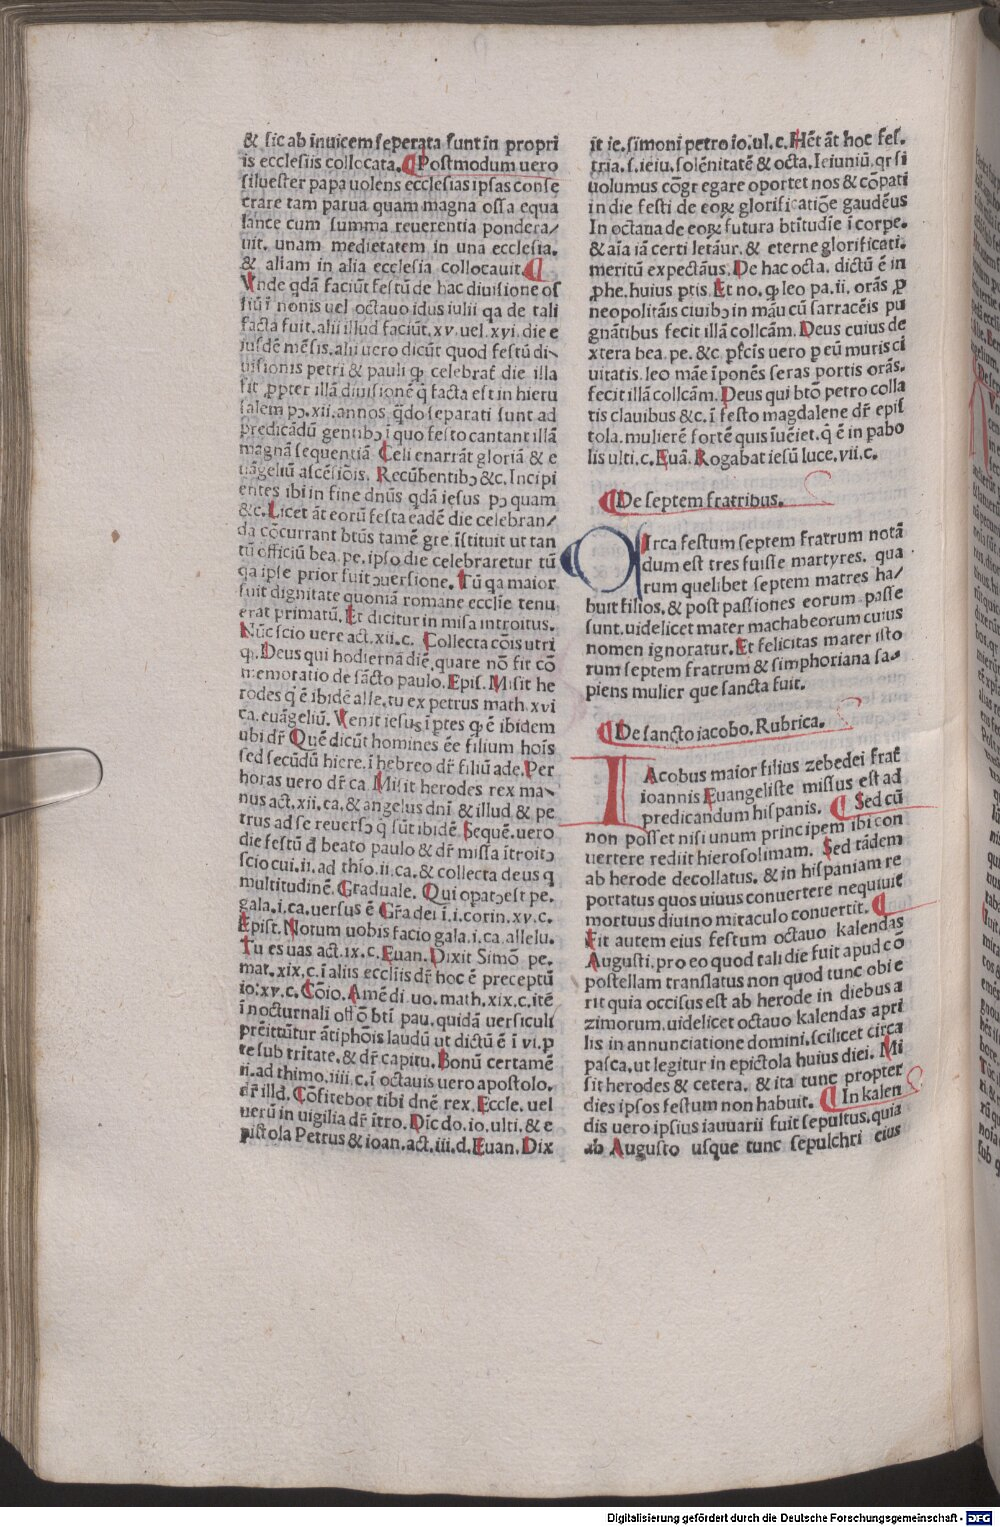 & sic ab inuicem seperata sunt in propri
is ecclesiis collocata. Postmodum uero
siluester papa uolens ecclesias ipsas conse
crare tam parua quam magna ossa equa
lance cum summa reuerentia pondera/
uit. unam medietatem in una ecclesia.
& aliam in alia ecclesia collocauit.
Vnde qdā faciūt festū de hac diuisione os
siū ī nonis uel octauo idus iulii qa de tali
facta fuit. alii illud faciūt. xv. uel. xvi. die e
iusdē mēsis. alii uero dicūt quod festū di-
uisionis petri & pauli qꝫ celebrat̄ die illa
fit ꝓpter illā diuisionē q̄ facta est in hieru
salem pꝯ. xii. annos. q̄do separati sunt ad
predicādū gentibꝫ ī quo festo cantant illā
magnā sequentiā Celi enarrāt gloriā & e
uāgeliū ascēsiōis. Recūbentibꝫ &c. Incipi
entes ibi in fine dnūs qdā iesus pꝯ quam
&c. Licet āt eorū festa eadē die celebran/
da cōcurrant btūs tamē gre. īstituit ut tan
tū officiū bea. pe. ipso die celebraretur tū
qa ipse prior fuit ꝯuersione. Tū qa maior
fuit dignitate quoniā romane ecclie tenu
erat primatū. Et dicitur in misa introitus.
Nūc scio uere act. xii. c. Collecta cōis utri
qꝫ. Deus qui hodiernā diē. quare nō fit cō
memoratio de sāncto paulo. Epis. Misit he
rodes q̄ ē ibidē alle. tu ex petrus math. xvi
ca. euāgeliū. Venit iesus ī ptes qꝫ ē ibidem
ubi dr̄ Quē dicūt homines ēe filium hoīs
sed secūdū hiere. ī hebreo dr̄ filiū ade. Per
horas uero dr̄ ca. Misit herodes rex ma-
nus act. xii. ca. & angelus dni & illud & pe
trus ad se reuersꝯ q sūt ibidē. Sequē. uero
die festū d̄ beato paulo & dr̄ missa ītroitꝯ
scio cui. ii. ad thīo. ii. ca. & collecta deus q
multitudinē. Graduale. Qui opatꝯ est pe.
gala. i. ca. uersus ē Gr̄a dei ī. i. corin. xv. c.
Epist. Notum uobis facio gala. i. ca. allelu.
Tu es uas act. ix. c. Euan. Dixit Simō pe.
mat. xix. c. ī aliis eccliis dr̄ hoc ē preceptū
io: xv. c. Cōio. Amē di. uo. math. xix. c. itē
ī nocturnali offo bti pau. quidā uersiculi
prēittūtur ātiphōis laudū ut dictū ē ī vi. p
te sub tritate. & dr̄ capitu. Bonū certamē
ii. ad thimo. iiii. c. ī octauis uero apostolo.
dr̄ illd. Cōfitebor tibi dnē rex. Eccle. uel
uerū in uigilia dr̄ ītro. Dic do. io. ulti. & e
pistola Petrus & ioan. act. iii. d. Euan. Dix
it ie. simoni petro io. ul. c. Hēt āt hoc fes.
tria. s. ieiu. solēnitatē & octa. Ieiuniū. qr si
uolumus cōgregare oportet nos & cōpati
in die festi de eoꝝ glorificatiōe gaudēus
In octaua de eoꝝ futura btitudie ī corpe.
& aīa iā certi letāur. & eterne glorificati.
meritū expectāus. De hac octa. dictū ē in
ꝓhe. huius ptis. Et no. qꝫ leo pa. ii. orās ꝓ
neopolitāis ciuibꝫ in māu cū sarraceīs pu
gnātibus fecit illā collcām. Deus cuius de
xtera bea. pe. &c. pfcīs uero ꝓ eū mutis ci
uitatis. leo māe īponēs seras portis orās.
fecit illā collcām. Deus qui btō petro colla
tis clauibus &c. ī festo magdalene dr̄ epis
tola. mulierē fortē quis īuēiet. q̄ ē in pabo
lis ulti. c. Euā. Rogabat iesū luce. vii. c.
De septem fratribus.
Irca festum septem fratrum notā
dum est tres fuisse martyres. qua
rum quelibet septem matres ha/
buit filios. & post passiones eorum passe
sunt. uidelicet mater machabeorum cuius
nomen ignoratur. Et felicitas mater isto
rum septem fratrum & simphoriana sa-
piens mulier que sancta fuit.
De sancto iacobo. Rubrica.
IAcobus maior filius zebedei frat̄
ioannis Euangeliste missus est ad
predicandum hispanis. Sed cū
non posset nisi unum principem ibi con
uertere rediit hierosolimam. Sed tādem
ab herode decollatus. & in hispaniam re
portatus quos uiuus conuertere nequiuit
mortuus diuino miraculo conuertit.
Fit autem eius festum octauo kalendas
Augusti. pro eo quod tali die fuit apud cō
postellam translatus non quod tunc obie
rit quia occisus est ab herode in diebus a
zimorum. uidelicet octauo kalendas apri
lis in annunciatione domini. scilicet circa
pasca. ut legitur in epictola huius diei. Mi
sit herodes & cetera. & ita tunc propter
dies ipsos festum non habuit. In kalen
dis uero ipsius iauuarii fuit sepultus. quia
ab Augusto usque tunc sepulchri eius
Digitalisierung gefördert durch die Deutsche Forschungsgemeinschaft - DFG